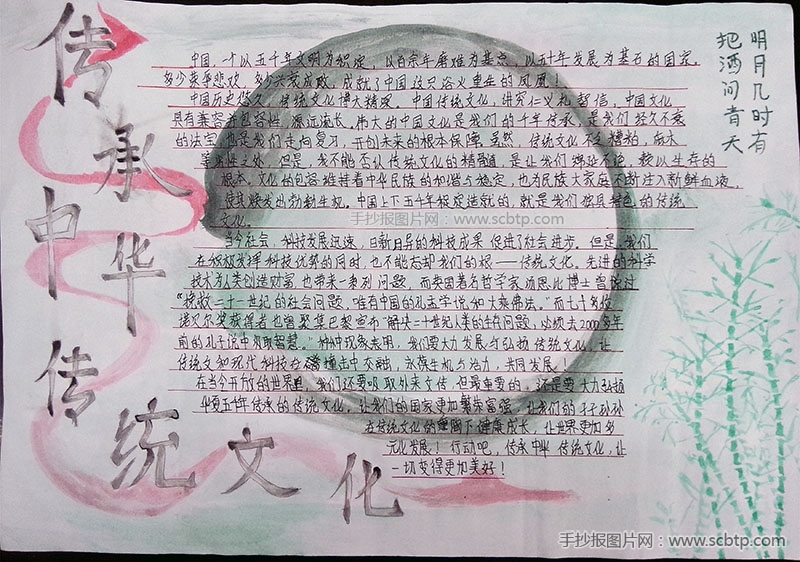 传承中华传统文化
明月几时有
把酒问青天
中国，一个以五千年文明为积淀，以百余年磨难为基点，以五十年发展为基石的国家。
多少荣辱悲欢，多少兴衰成败，成就了中国这只浴火重生的凤凰！
中国历史悠久，传统文化博大精深。中国传统文化，讲究仁义礼智信。中国文化
具有兼容并包容性，源远流长。伟大的中国文化是我们的千年传承，是我们经久不衰
的法宝，也是我们走向复习，开创未来的根本保障。虽然，传统文化不乏糟粕，
之处，但是，我不能否认传统文化的精髓，是让我们绵延不记，赖以生存的
根本。文化的包容维持着中华民族的和谐与稳定，也为民族大家庭不断注入新鲜血液，
使其焕发出勃勃生机。中国上下五千年极度造就的，就是我们独具特色的传统
文化。
当今社会，科技发展迅速，日新月异的科技成果促进了社会进步。但是，我们
在极极发挥科技优势的同时，也不能忘却我们的根——传统文化。先进的科学
技术为人类创造财富，也带来一系列问题，而英国著名哲学家汤恩比博士曾说过
“挽救二十一世纪的社会问题，唯有中国的孔孟学说和大乘佛法。”而七十多位
诺贝尔奖获得者也曾聚集巴黎宣布“解决二十世纪人类的生存问题，必须去2000多年
前的孔子说中汲取智慧。”种种现象表明，我们要大力发展与弘扬传统文化，让
传统文和现代科技在撞击中交融，永葆生机与活力，共同发展！
在当今开放的世界里，我们还要吸取外来文传，但最重要的，还是要大力弘扬
华夏五千年传承的传统文化，让我们的国家更加繁荣富强，让我们的子子孙孙
在传统文化的熏陶下健康成长，让世界更加多
元化发展！行动吧，传承中华传统文化，让
一切变得更加美好！
手抄报图片网：www.scbtp.com
手抄报图片网：www.scbtp.com